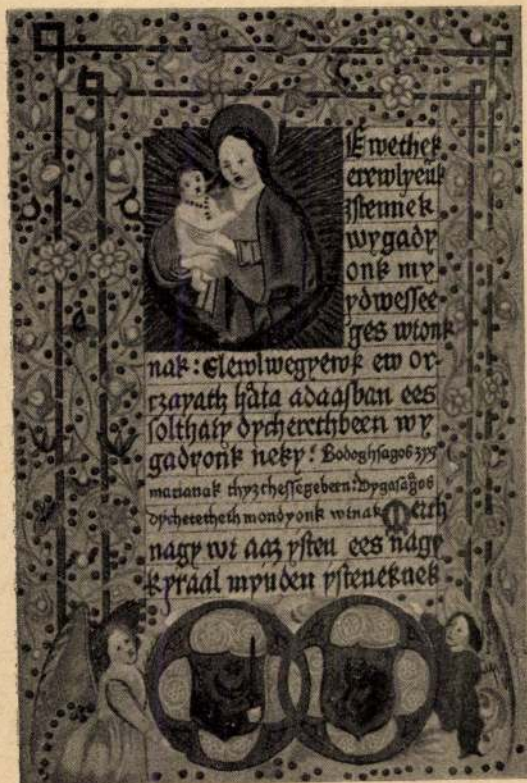 Ewethek
erewlyewk
ystennek
wygady
onk my
ydwessee-
ges wronk
nak: Elewlwegyewk ew or-
czayath hata adaasban ees
solthaty dycherethbeen wy
gadyonk neky: Bodoghsagos zyz
marianak thyzchessegebeen: Vygasagos
dycheretheth mondyonk wrnak Merth
nagy wr aaz ysten ees nagy
kyraal mynden ysteneknek